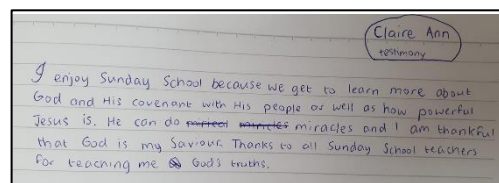 Claire Ann
testimony
I enjoy Sunday School because we get to learn more about
God and His covenant with His people as well as how powerful
Jesus is. He can do miracles and I am thankful
that God is my Saviour. Thanks to all Sunday School teachers
for teaching me God's truths.